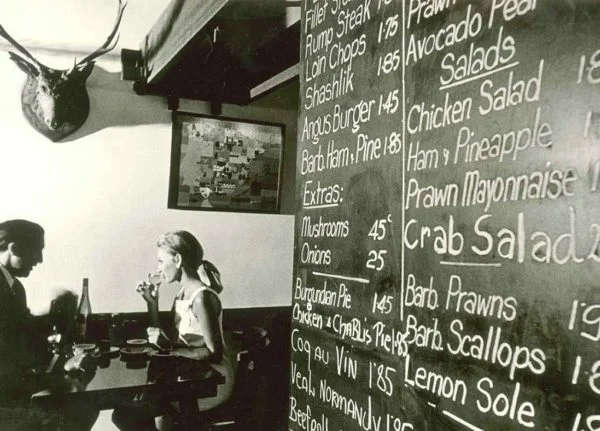 Fillet Steak
Rump Steak 1·75
Loin Chops 1·85
Shashlik
Angus Burger 1·45
Barb. Ham & Pine 1·85
Extras:
Mushrooms 45c
Onions 25
Burgundian Pie 1·45
Chicken & Chablis Pie 1·85
Coq au Vin 1'85
Veal Normandy 1'85
Prawn
Avocado Pear
Salads
Chicken Salad
Ham & Pineapple
Prawn Mayonnaise
Crab Salad
Barb. Prawns
Barb. Scallops
Lemon Sole